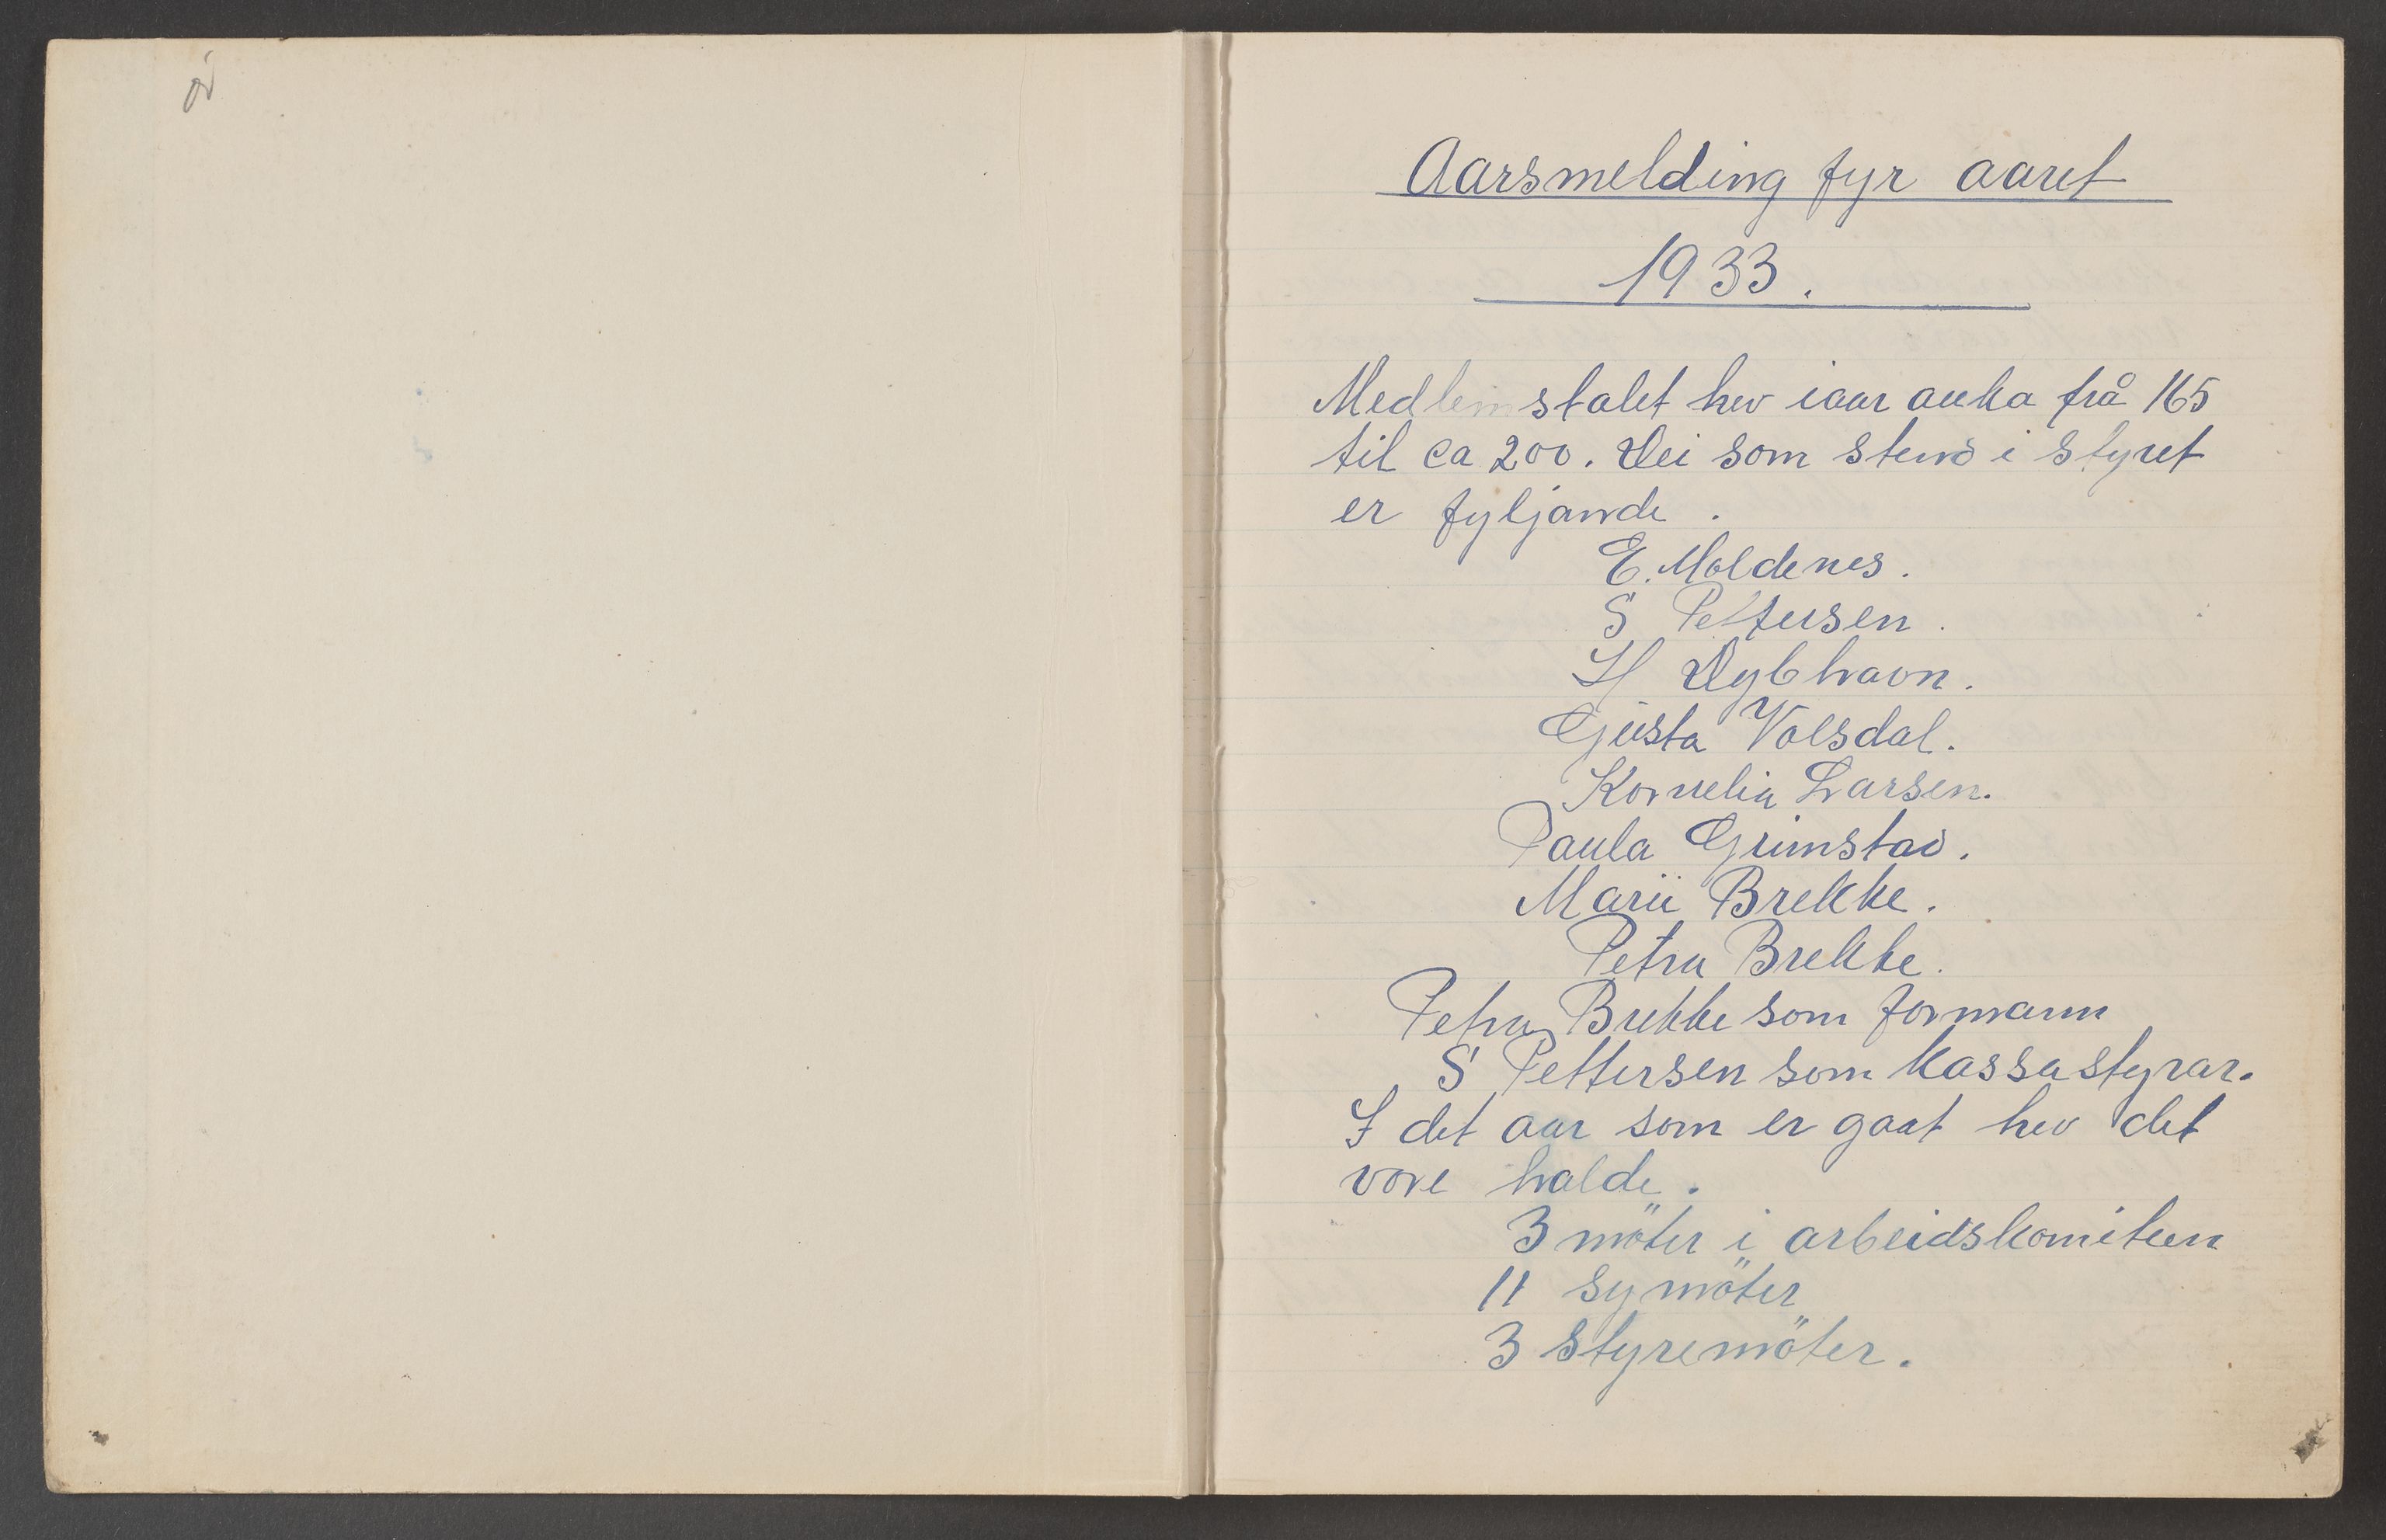 Aarsmelding fyr aaret
1933.
Medlemstalet hev iaar auka frå 165
til ca 200. Dei som stend i styret
er fyljande.
E. Moldenes.
S Pettersen.
H Dybhavn.
Gusta Volsdal.
Kornelia Larsen.
Paula Grimstad.
Marie Brekke.
Petra Brekke.
Petra Brekke som formann
S Pettersen som kassastyrar.
I det aar som er gaat hev det
vore halde.
3 möter i arbeidskomiteen
11 symöter
3 Styremöter.